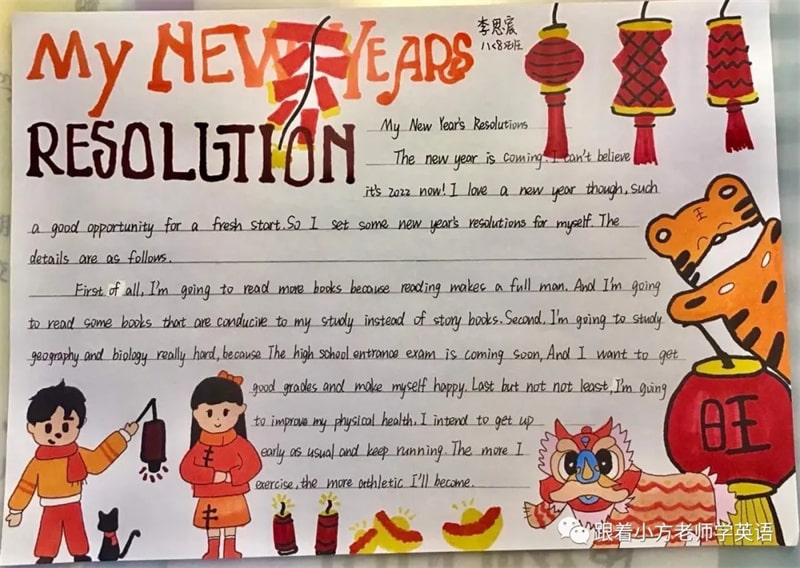 My NEW YEARS
RESOLUTION
李思宸
八(8)班
My New Year's Resolutions
The new year is coming. I can't believe
it's 2022 now! I love a new year though, such
a good opportunity for a fresh start. So I set some new year's resolutions for myself. The
details are as follows.
First of all, I'm going to read more books because reading makes a full man. And I'm going
to read some books that are conducive to my study instead of story books. Second, I'm going to study
geography and biology really hard, because The high school entrance exam is coming soon, And I want to get
good grades and make myself happy. Last but not not least, I'm going
to improve my physical health. I intend to get up
early as usual and keep running. The more I
exercise, the more arthletic I'll become.
王
旺
跟着小方老师学英语